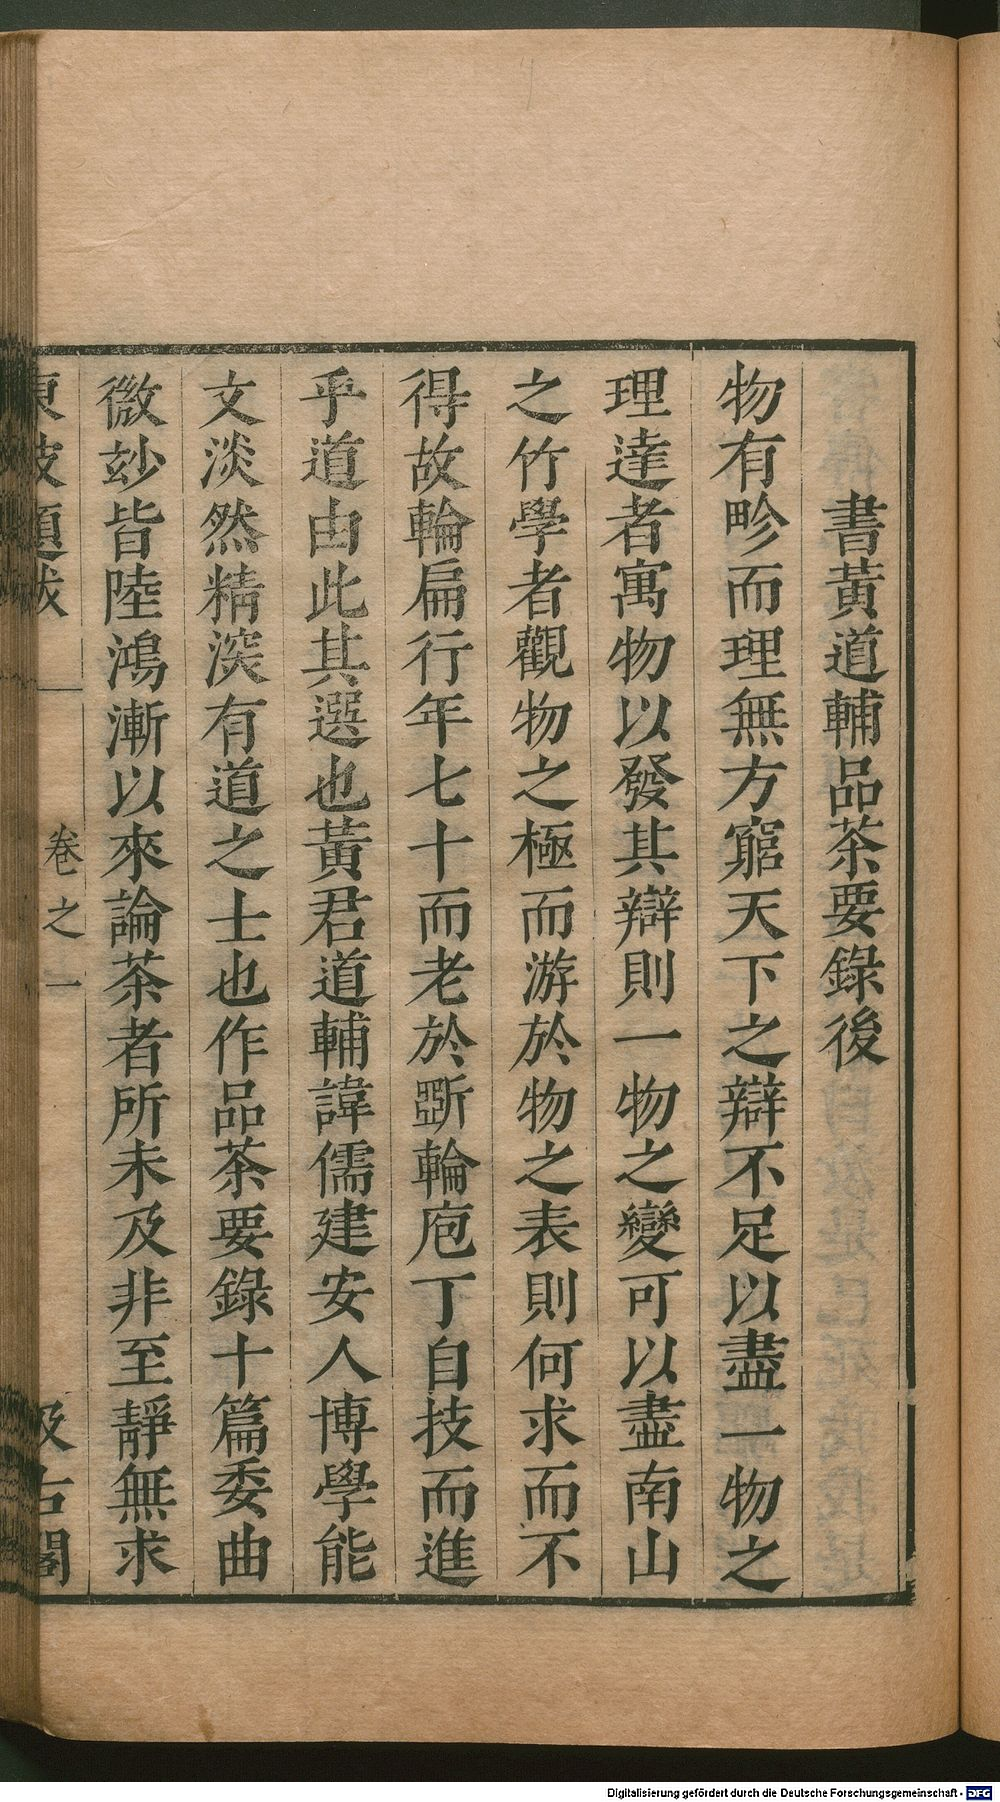 書黃道輔品茶要錄後
物有畛而理無方窮天下之辯不足以盡一物之
理達者寓物以發其辯則一物之變可以盡南山
之竹學者觀物之極而游於物之表則何求而不
得故輪扁行年七十而老於斲輪庖丁自技而進
乎道由此其選也黃君道輔諱儒建安人博學能
文淡然精深有道之士也作品茶要錄十篇委曲
微妙皆陸鴻漸以來論茶者所未及非至靜無求
東坡題跋 卷之一 汲古閣
Digitalisierung gefördert durch die Deutsche Forschungsgemeinschaft - DFG